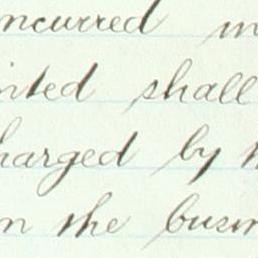 ncurred in
inted shall
harged by
in the busin